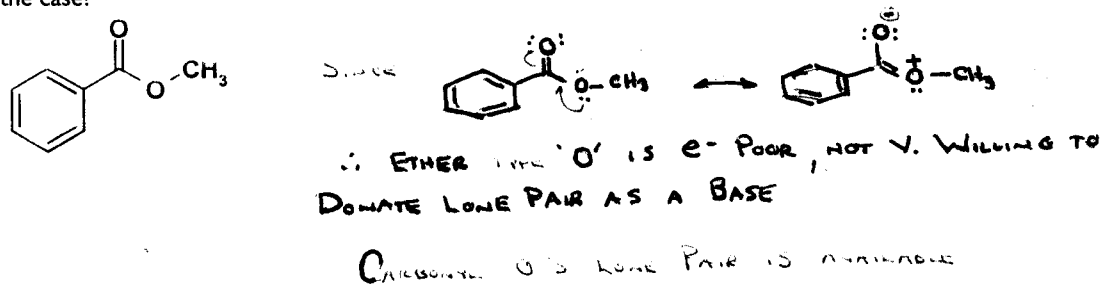 the case?
O
O
CH₃
SINCE
:O:
O–CH₃
:O:
+
O–CH₃
∴ ETHER TYPE 'O' IS e⁻ POOR, NOT V. WILLING TO
DONATE LONE PAIR AS A BASE
CARBONYL O'S LONE PAIR IS AVAILABLE